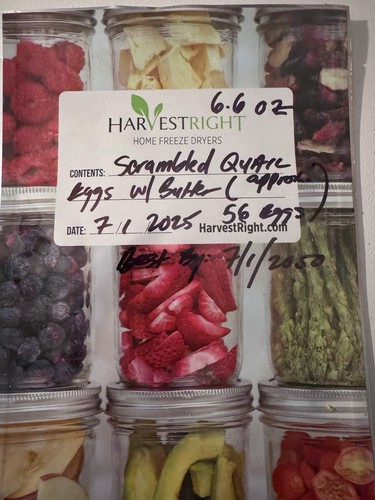 6.6 oz
HARVESTRIGHT
HOME FREEZE DRYERS
CONTENTS: Scrambled Quail
Eggs w/ Butter (approx.
56 eggs)
DATE: 7/1 2025 HarvestRight.com
Best By: 7/1/2050